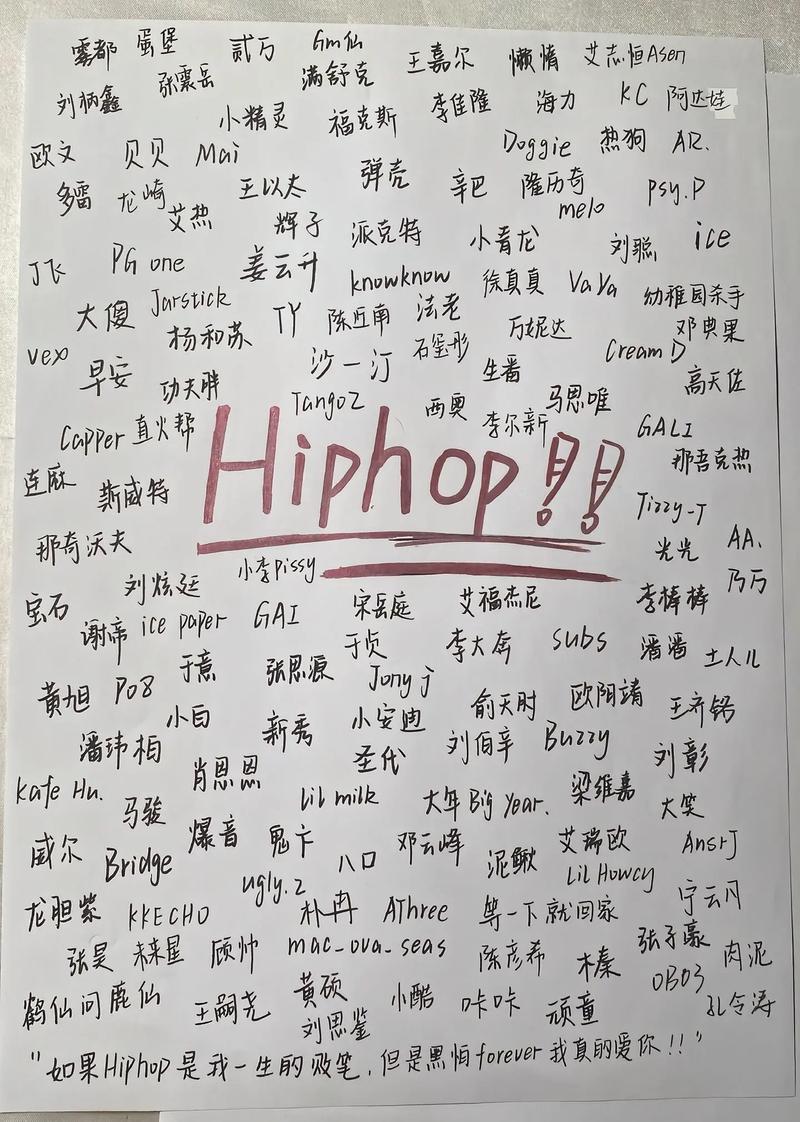 雾都 蛋堡 贰万 Gm仙 王嘉尔 懒惰 艾志恒Asen
刘柄鑫 张震岳 满舒克 李佳隆 海力 KC 阿达娃
小精灵 福克斯
欧文 贝贝 Mai Doggie 热狗 AR.
多雷 龙崎 王以太 弹壳 辛巴 隆历奇 psy.P
艾热 辉子 派克特 小青龙 melo 刘聪 ice
J飞 PG one 姜云升 knowknow 徐真真 VaVa 幼稚园杀手
大傻 Jarstick 杨和苏 TY 陈近南 法老 万妮达 邓典果
vex 早安 功夫胖 沙一汀 石玺彤 生番 Cream D 高天佐
Tango Z 西奥 李尔新 马思唯
Capper 直火帮 GALI
连麻 斯威特 Hiphop!! 那吾克热
Tizzy-T
那奇沃夫 光光 AA.
宝石 刘炫廷 小李pissy 李棒棒 乃万
谢帝 ice paper GAI 宋岳庭 艾福杰尼
于贞 李大奔 subs 潘潘 土人儿
黄旭 PO8 于意 张思源 Jony j 俞天时 欧阳靖 王齐铭
小白 新秀 小安迪
潘玮柏 肖恩恩 圣代 刘佰辛 Buzzy 刘彰
Kafe Hu. 马骏 Lil milk 大年Big Year. 梁维嘉 大笑
威尔 Bridge 爆音 鬼卞 八口 邓云峰 泥鳅 艾瑞欧 AnsrJ
ugly.z Lil Howcy
龙胆紫 KKECHO 朴冉 AThree 等一下就回家 宁云月
张昊 未来星 顾帅 mac_ova_seas 陈彦希 木秦 张子豪 肉泥
鹤仙问鹿仙 王嗣尧 黄硕 小酷 咔咔 顽童 OBO3 孔令涛
刘思鉴
“如果Hiphop是我一生的败笔,但是黑怕forever我真的爱你!!”